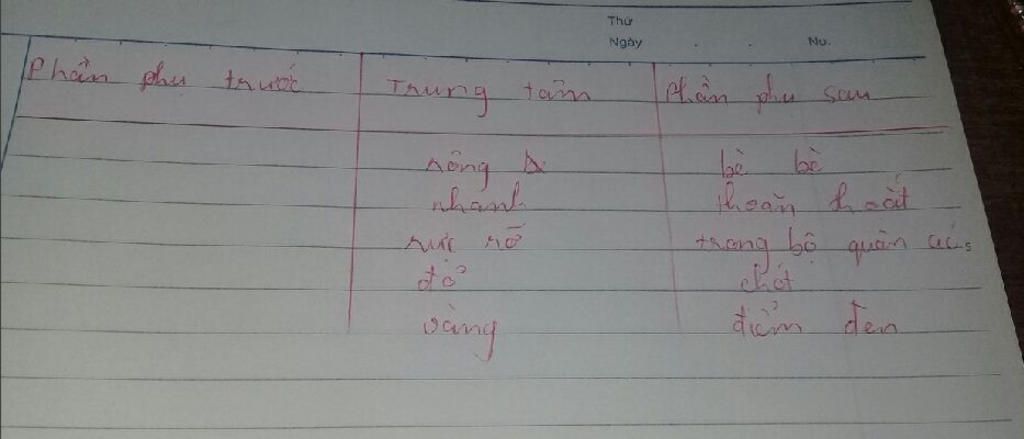 Thứ
Ngày . . No.
Phần phụ trước Trung tâm Phần phụ sau
rộng bè bè
nhanh thoăn thoắt
rực rỡ trong bộ quần áo
đỏ chót
vàng điểm đen